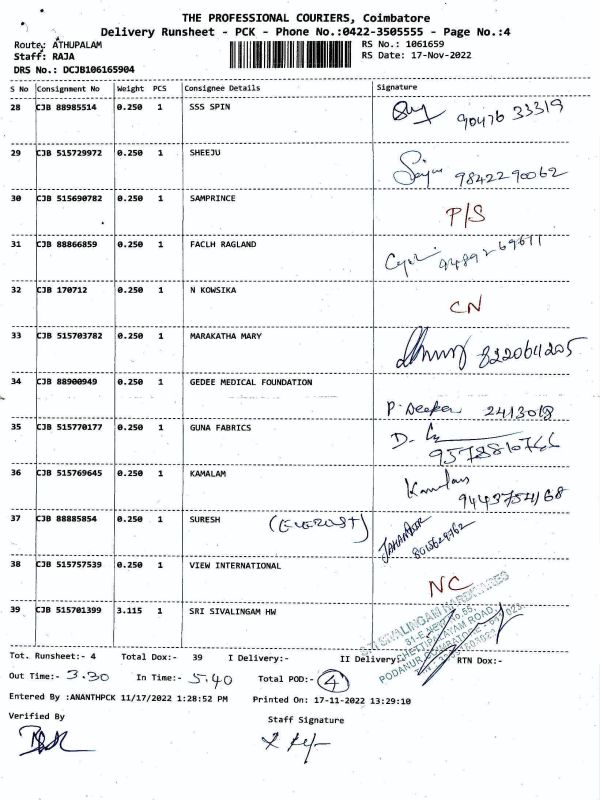 THE PROFESSIONAL COURIERS, Coimbatore
Delivery Runsheet - PCK - Phone No.:0422-3505555 - Page No.:4
Route: ATHUPALAM RS No.: 1061659
Staff: RAJA RS Date: 17-Nov-2022
DRS No.: DCJB106165904
S No Consignment No Weight PCS Consignee Details Signature
28 CJB 88985514 0.250 1 SSS SPIN 90476 33319
29 CJB 515729972 0.250 1 SHEEJU 9842290062
30 CJB 515690782 0.250 1 SAMPRINCE P/S
31 CJB 88866859 0.250 1 FACLH RAGLAND
32 CJB 170712 0.250 1 N KOWSIKA CN
33 CJB 515703782 0.250 1 MARAKATHA MARY 8220641205
34 CJB 88900949 0.250 1 GEDEE MEDICAL FOUNDATION P. Deepa 2413018
35 CJB 515770177 0.250 1 GUNA FABRICS
36 CJB 515769645 0.250 1 KAMALAM 9443754168
37 CJB 88885854 0.250 1 SURESH (EVEREST)
38 CJB 515757539 0.250 1 VIEW INTERNATIONAL NC
39 CJB 515701399 3.115 1 SRI SIVALINGAM HW
Tot. Runsheet:- 4 Total Dox:- 39 I Delivery:- II Delivery:- RTN Dox:-
Out Time:- 3.30 In Time:- 5.40 Total POD:- 4
Entered By :ANANTHPCK 11/17/2022 1:28:52 PM Printed On: 17-11-2022 13:29:10
Verified By Staff Signature